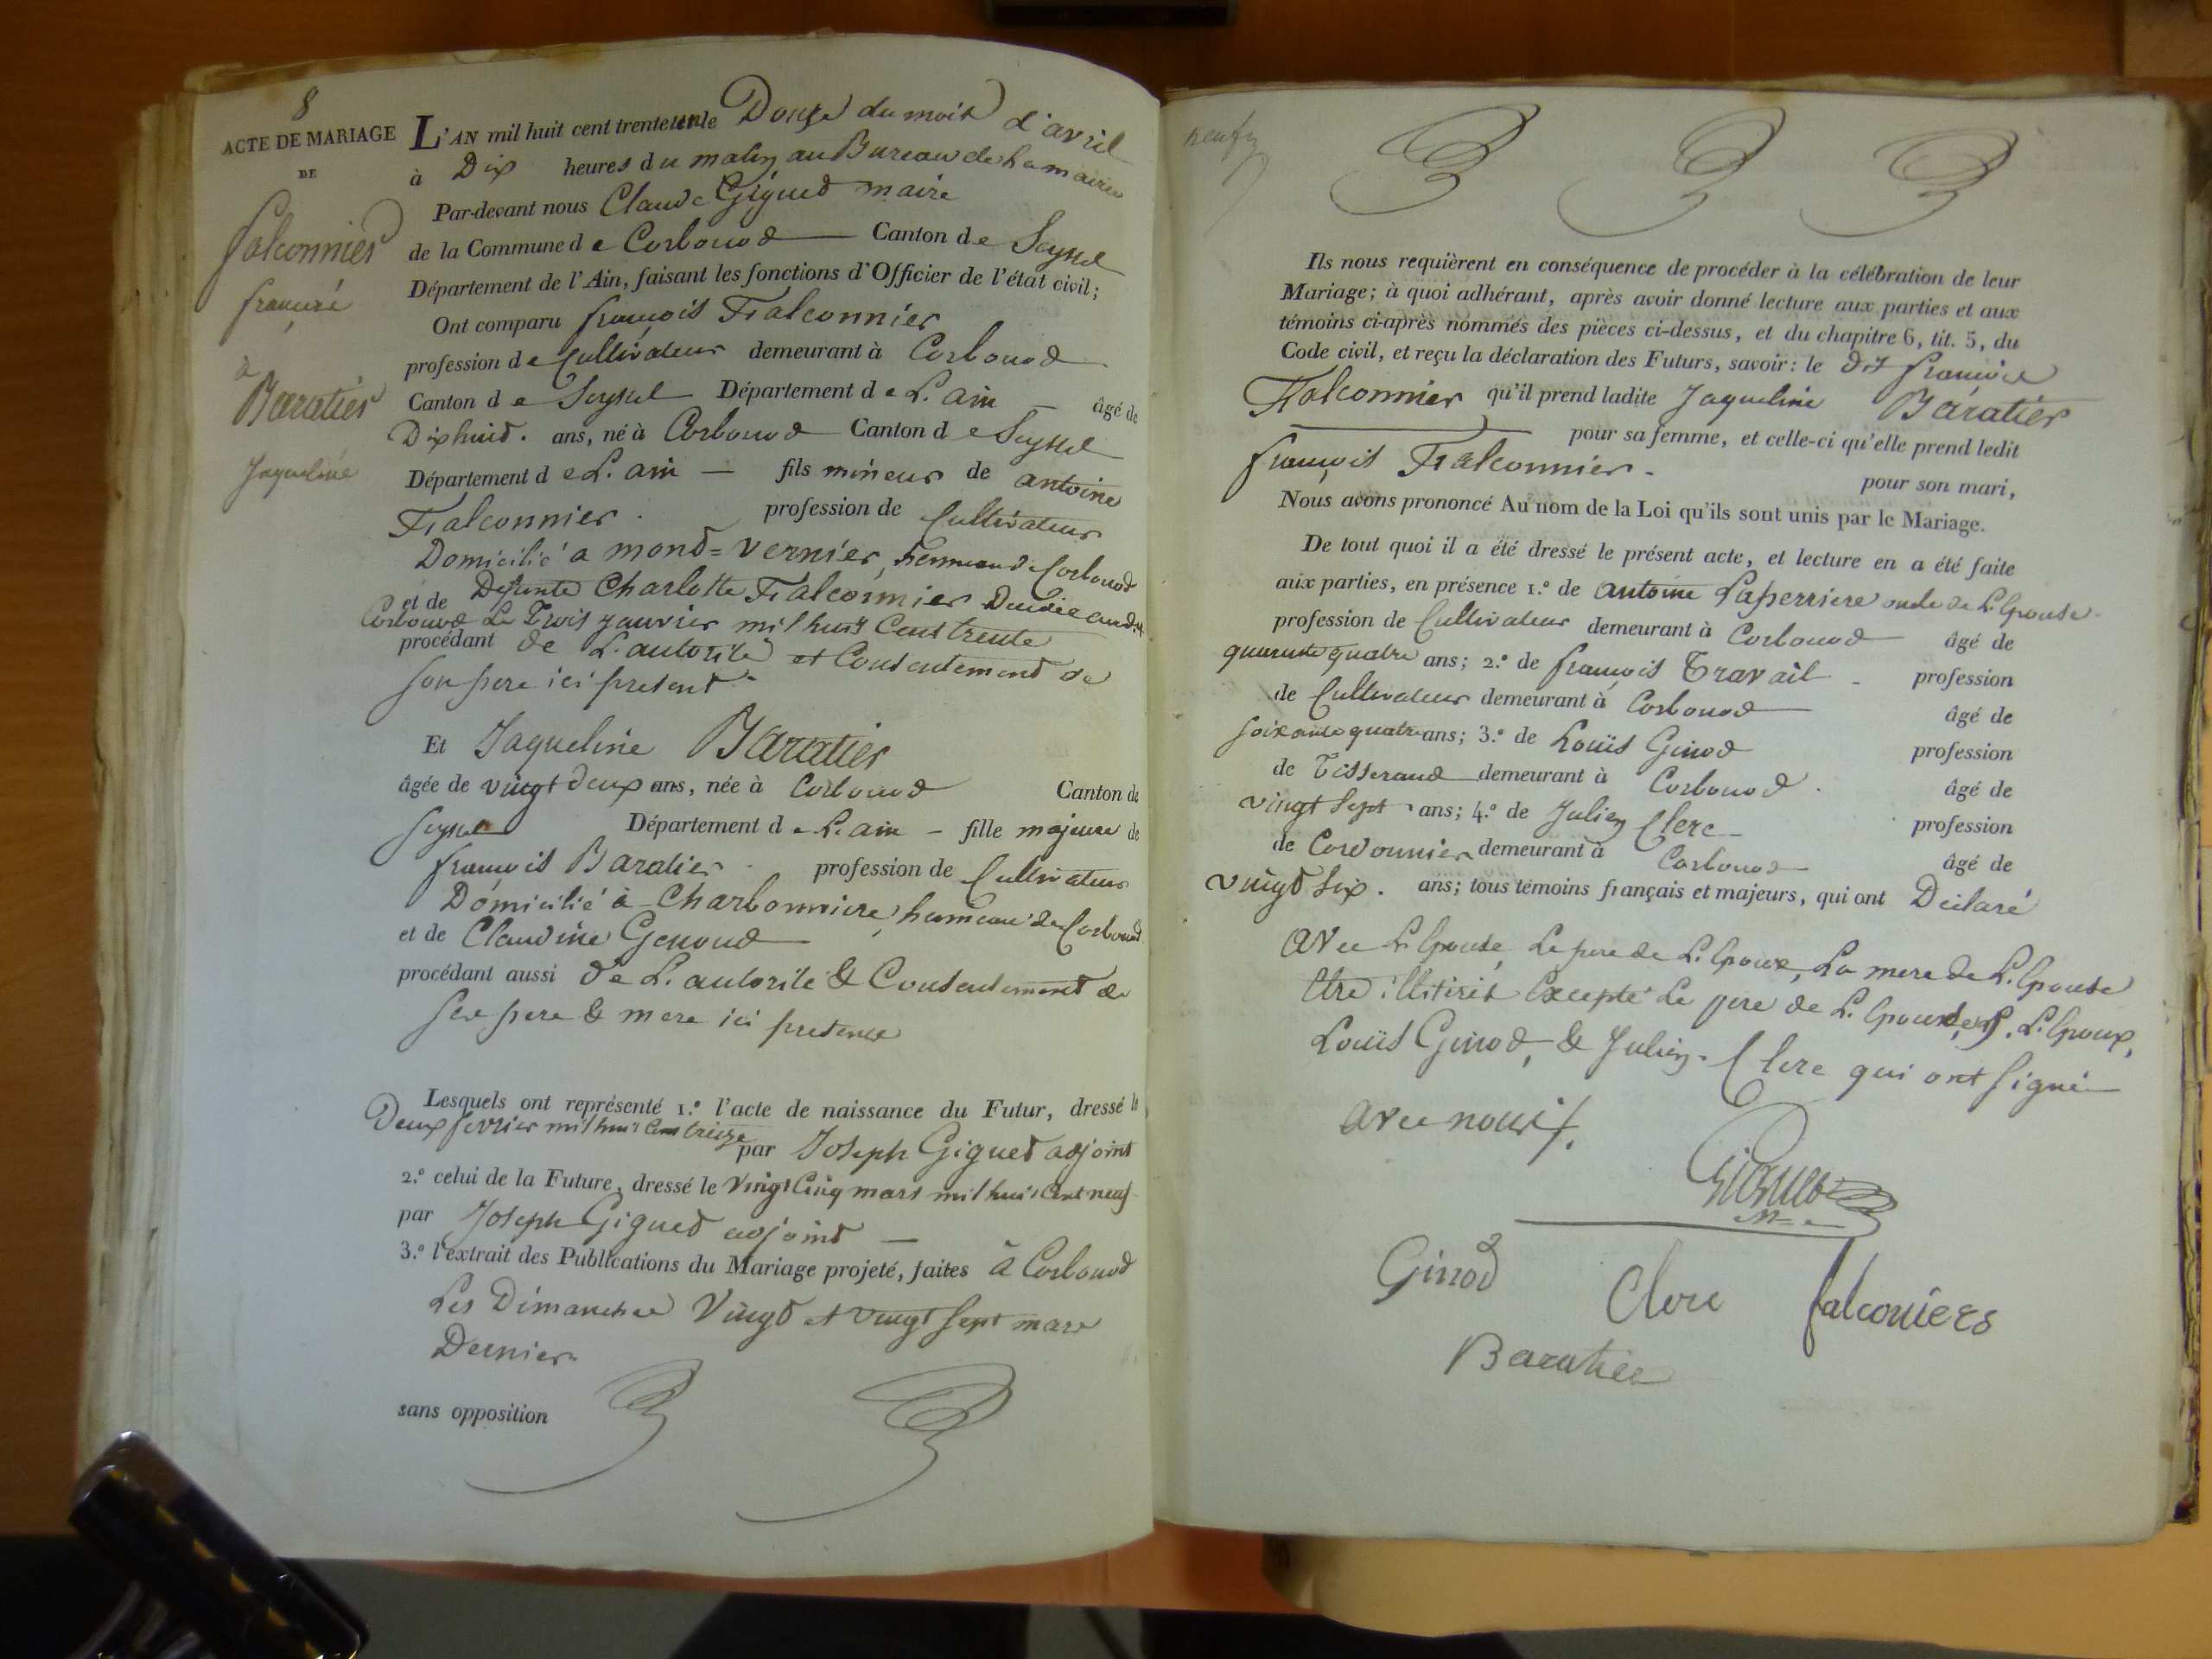 8
ACTE DE MARIAGE
DE
falconnier
françois
à
Baratier
Jaqueline
L'AN mil huit cent trente un le Douze du mois d'avril
à Dix heures du matin au Bureau de la mairie
Par-devant nous Claude Giguet maire
de la Commune de Corbonod Canton de Seyssel
Département de l'Ain, faisant les fonctions d'Officier de l'état civil;
Ont comparu françois Falconnier
profession de Cultivateur demeurant à Corbonod
Canton de Seyssel Département de L. ain âgé de
Dixhuit. ans, né à Corbonod Canton de Seyssel
Département de L. ain — fils mineur de antoine
Falconnier. profession de Cultivateur
Domicilié a mont=vernier, hameau de Corbonod
et de Defunte Charlotte Falconnier Decedée audit
Corbonod Le Trois janvier mil huit Cent trente
procédant de L. autorité et Consentement de
son pere ici present.
Et Jaqueline Baratier
âgée de vingt deux ans, née à Corbonod Canton de
Seyssel Département de L. ain — fille majeure de
françois Baratier profession de Cultivateur
Domicilié à Charbonniere, hameau de Corbonod
et de Claudine Genoud
procédant aussi de L. autorité & Consentement de
ses pere & mere ici presence
Lesquels ont représenté 1.º l'acte de naissance du Futur, dressé le
Deux fevrier mil huit Cent treize par Joseph Giguet adjoint
2.º celui de la Future, dressé le Vingt Cinq mars mil huit Cent neuf
par Joseph Giguet adjoint —
3.º l'extrait des Publications du Mariage projeté, faites à Corbonod
Les Dimanches Vingt et vingt sept mars
Dernier
sans opposition
Ils nous requièrent en conséquence de procéder à la célébration de leur
Mariage; à quoi adhérant, après avoir donné lecture aux parties et aux
témoins ci-après nommés des pièces ci-dessus, et du chapitre 6, tit. 5, du
Code civil, et reçu la déclaration des Futurs, savoir: le dit françois
Falconnier qu'il prend ladite Jaqueline Baratier
pour sa femme, et celle-ci qu'elle prend ledit
françois Falconnier. pour son mari,
Nous avons prononcé Au nom de la Loi qu'ils sont unis par le Mariage.
De tout quoi il a été dressé le présent acte, et lecture en a été faite
aux parties, en présence 1.º de antoine Laperriere oncle de L. Epouse
profession de Cultivateur demeurant à Corbonod âgé de
quarante quatre ans; 2.º de françois Travail profession
de Cultivateur demeurant à Corbonod âgé de
soixante quatre ans; 3.º de Louis Ginod profession
de Tisserand demeurant à Corbonod. âgé de
vingt sept ans; 4.º de Julien Clerc profession
de Cordonnier demeurant à Corbonod âgé de
vingt six. ans; tous témoins français et majeurs, qui ont Déclaré
avec L. Epouse, Le pere de L. Epoux, La mere de L. Epouse
Etre illitirés Excepté Le pere de L. Epouse, L. Epoux,
Louis Ginod, & Julien Clerc qui ont signé
avec nous.
Giguet
Ginod Clerc falconiers
Baratier